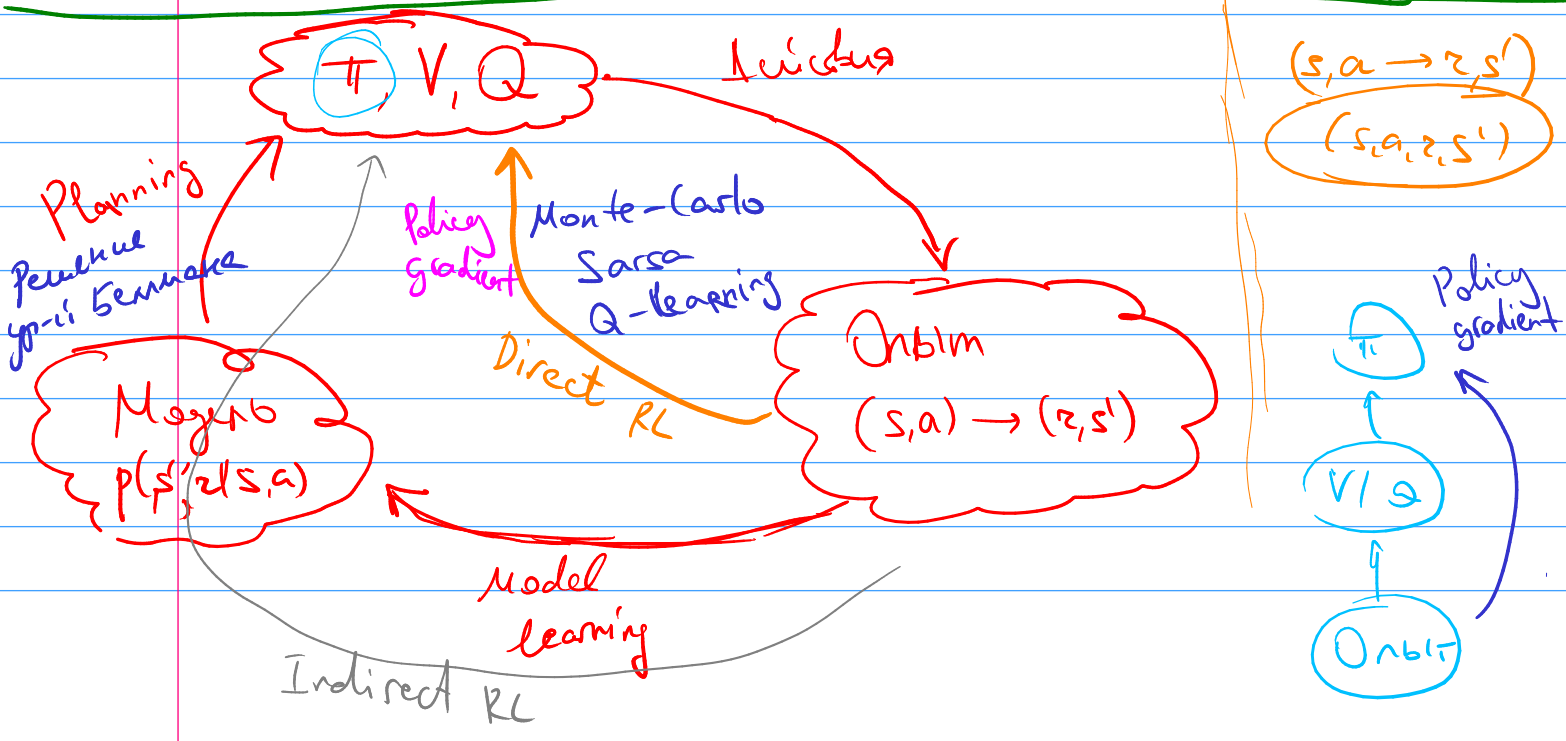 π, V, Q
Действия
(s,a → r,s')
(s,a,r,s')
Planning
Решение
ур-й Беллмана
Policy
gradient
Monte-Carlo
Sarsa
Q-learning
Direct
RL
Опыт
(s,a) → (r,s')
Модель
p(s',r|s,a)
Model
learning
Indirect RL
Policy
gradient
π
V/Q
Опыт